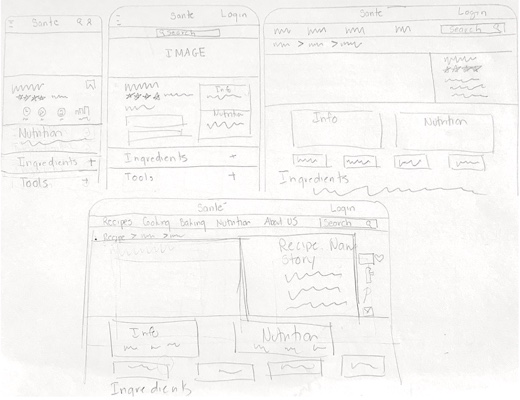 Sante
Nutrition
Ingredients +
Tools +
Sante Login
Search
IMAGE
Info
Nutrition
Ingredients +
Tools +
Sante Login
Search
Info
Nutrition
Ingredients
Sante Login
Recipes Cooking Baking Nutrition About US Search
Recipe >
Recipe Nam
Story
Info
Nutrition
Ingredients